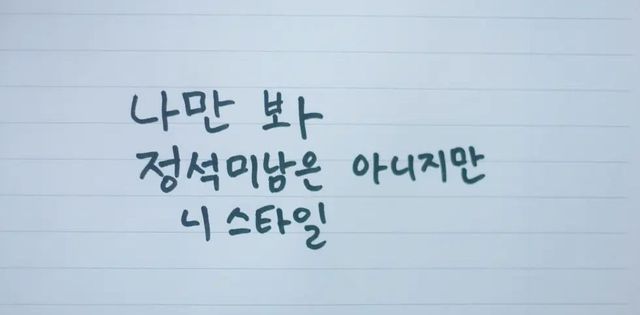 나만 봐
정석미남은 아니지만
니 스타일